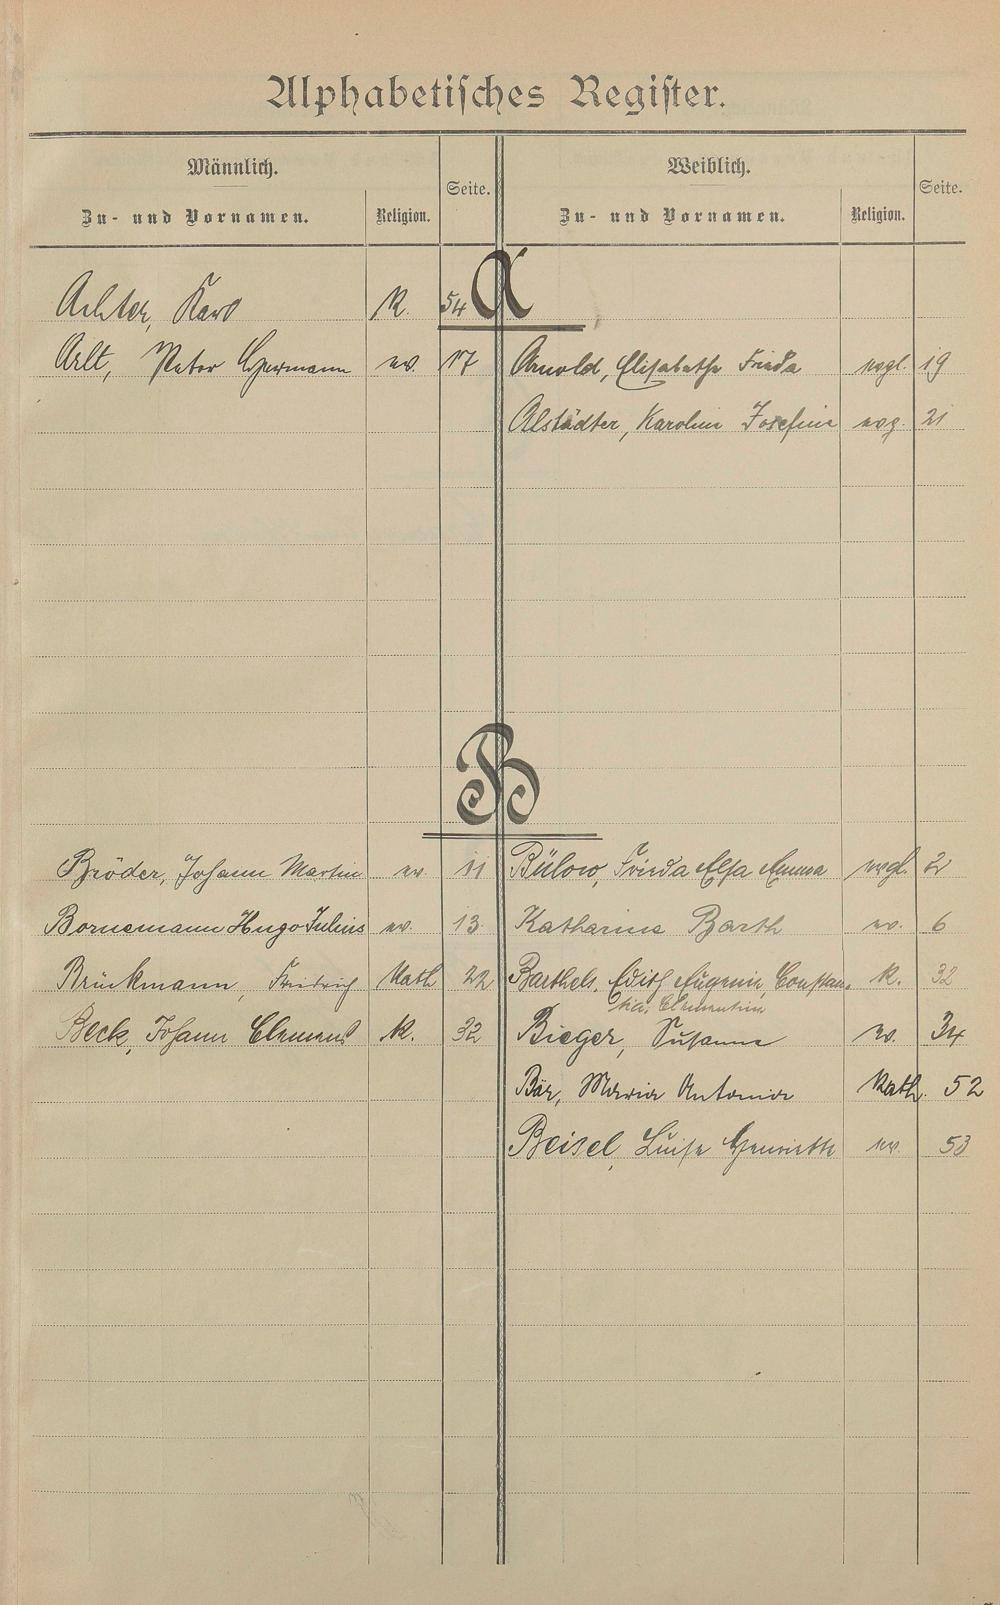 Alphabetisches Register.
Männlich.
Zu- und Vornamen.
Religion.
Seite.
Weiblich.
Zu- und Vornamen.
Religion.
Seite.
A
Achter, Karl k. 54
Arlt, Peter Hermann ev. 17
Arnold, Elisabetha Frieda evgl. 19
Alstädter, Karolin Josefine evg. 21
B
Bröder, Johann Martin ev. 11
Bülow, Frieda Elsa Emma evgl. 2
Bornemann Hugo Julius ev. 13
Katharina Barth ev. 6
Brückmann, Friedrich Kath 22
Barthels, Edith Eugenie, Constan- k. 32
tia, Clementine
Beck, Johann Clemens k. 32
Bieger, Susanna ev. 34
Bär, Maria Antonia Kath. 52
Beisel, Luise Henriette ev. 53